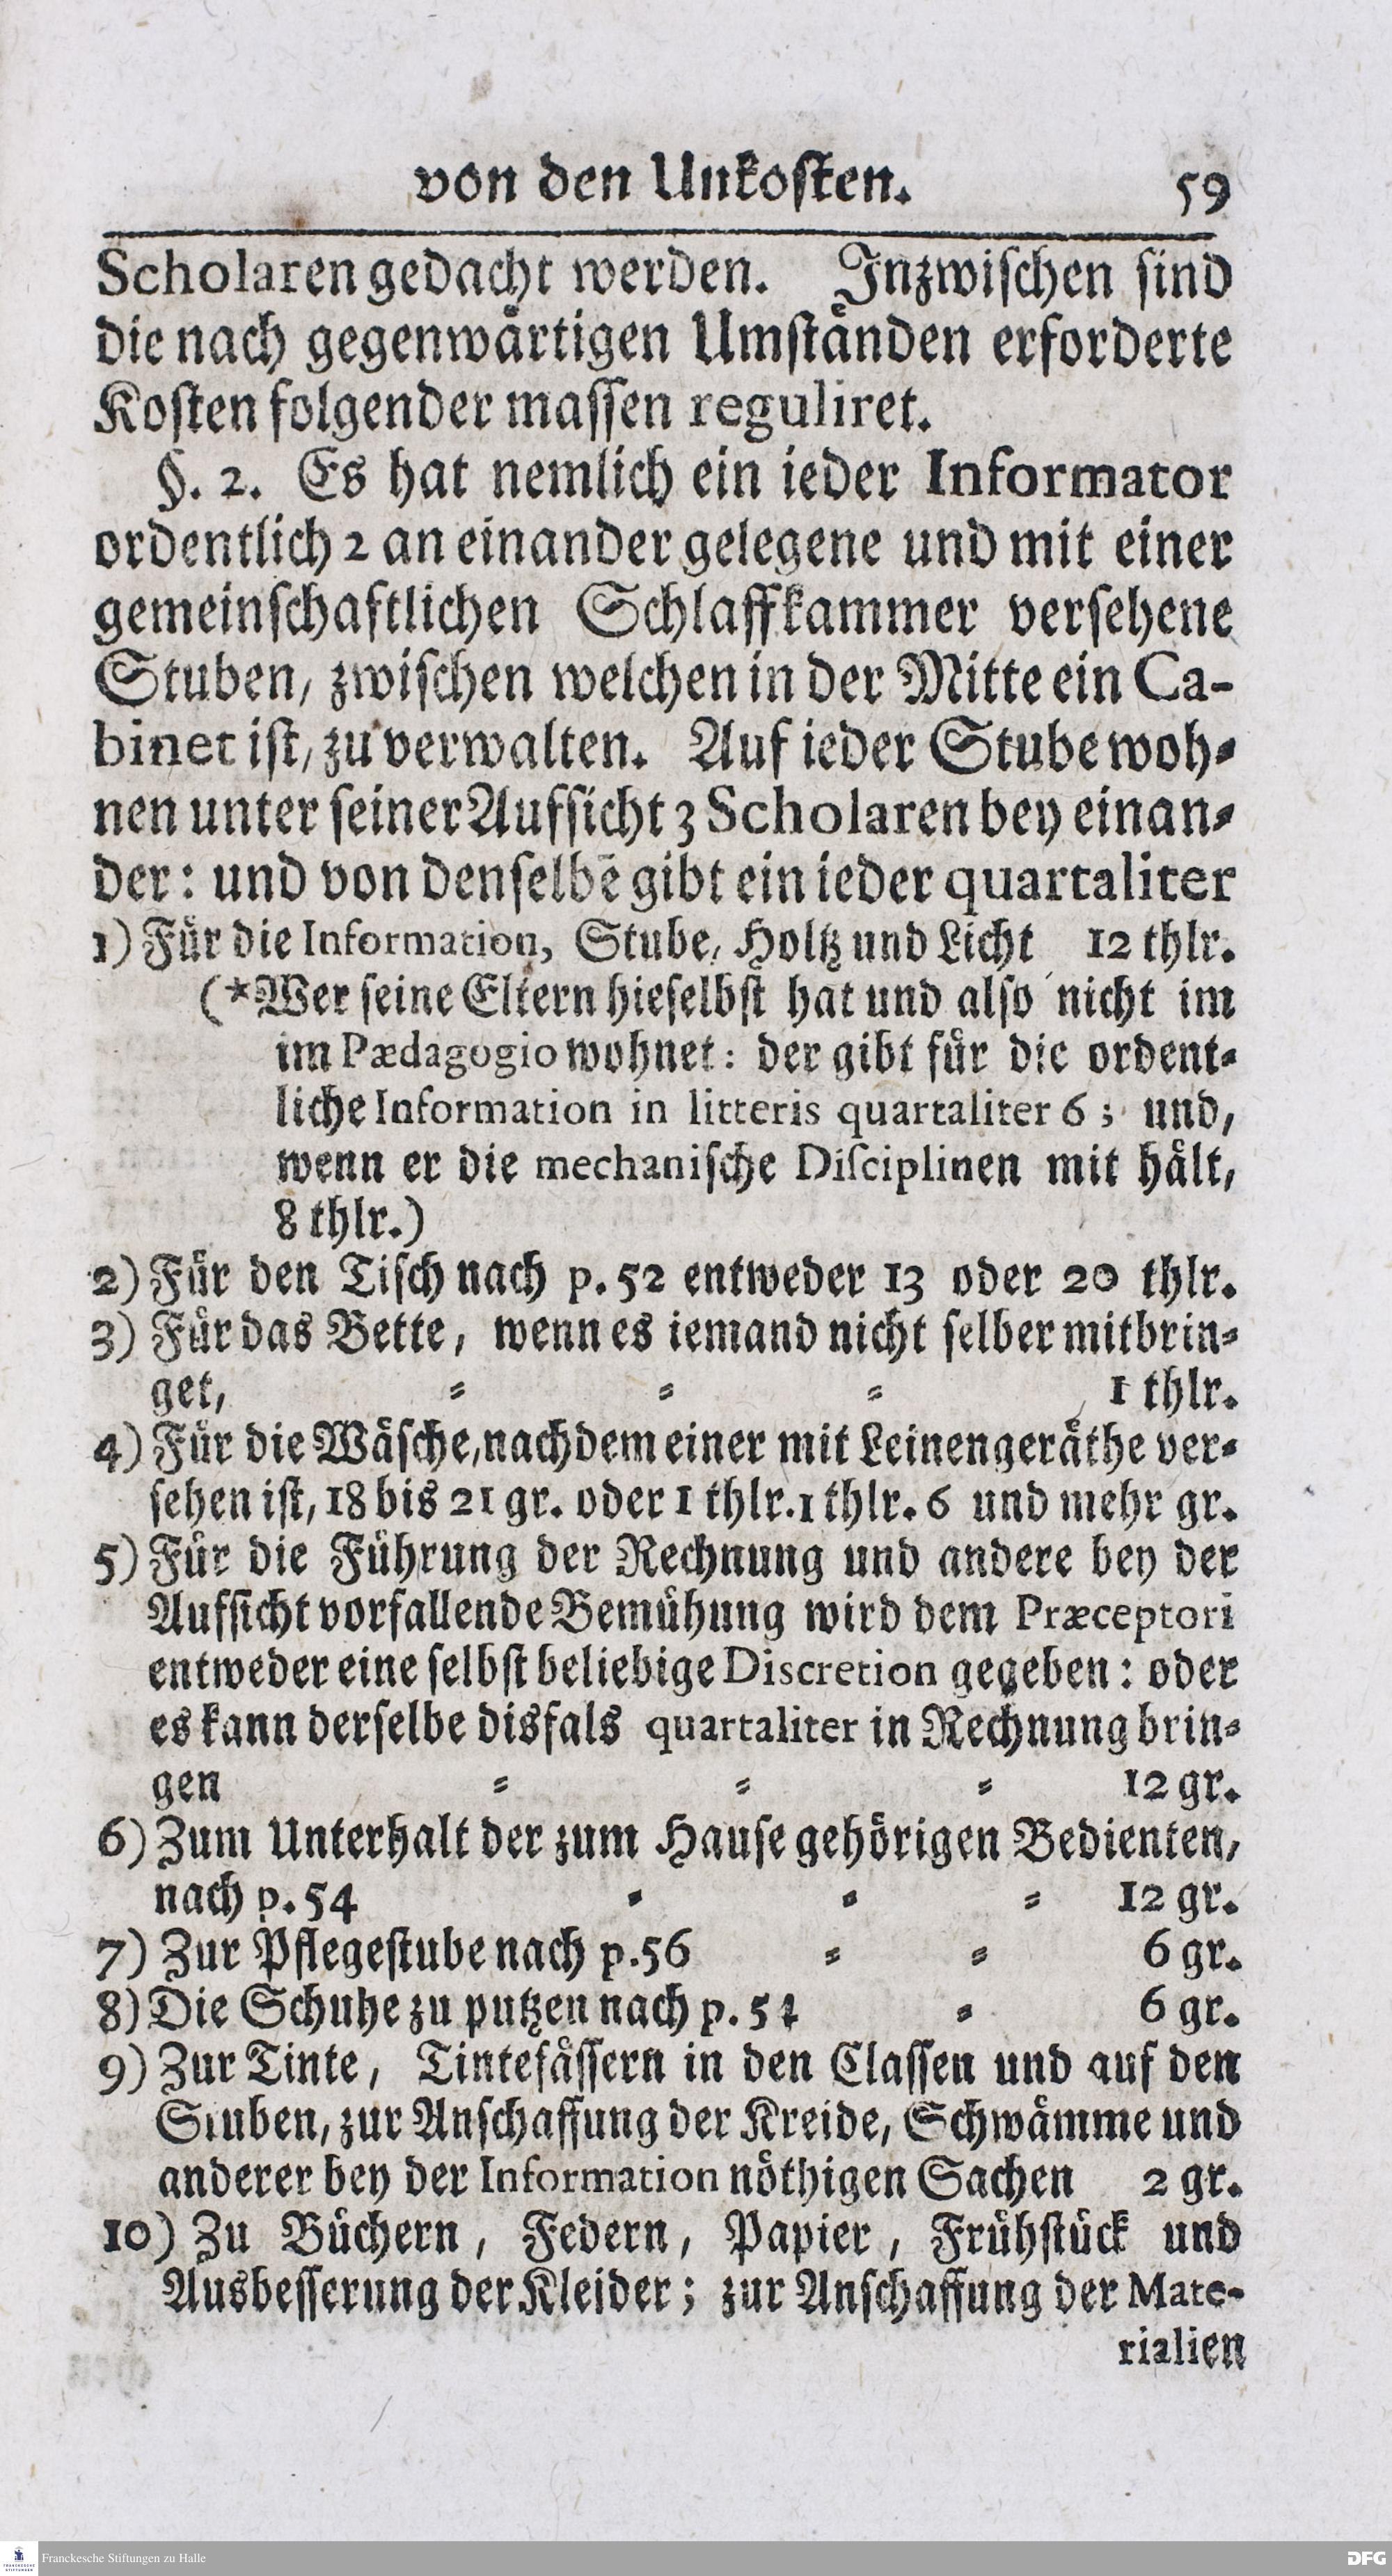 von den Unkoſten. 59
Scholaren gedacht werden. Inzwiſchen ſind
die nach gegenwaͤrtigen Umſtaͤnden erforderte
Koſten folgender maſſen reguliret.
§. 2. Es hat nemlich ein ieder Informator
ordentlich 2 an einander gelegene und mit einer
gemeinſchaftlichen Schlaffkammer verſehene
Stuben, zwiſchen welchen in der Mitte ein Ca-
binet iſt, zu verwalten. Auf ieder Stube woh-
nen unter ſeiner Aufſicht 3 Scholaren bey einan-
der: und von denſelbē gibt ein ieder quartaliter
1) Fuͤr die Information, Stube, Holtz und Licht 12 thlr.
(*Wer ſeine Eltern hieſelbſt hat und alſo nicht im
im Pædagogio wohnet: der gibt fuͤr die ordent-
liche Information in litteris quartaliter 6; und,
wenn er die mechaniſche Diſciplinen mit haͤlt,
8 thlr.)
2) Fuͤr den Tiſch nach p. 52 entweder 13 oder 20 thlr.
3) Fuͤr das Bette, wenn es iemand nicht ſelber mitbrin-
get, = = = 1 thlr.
4) Fuͤr die Waͤſche, nachdem einer mit Leinengeraͤthe ver-
ſehen iſt, 18 bis 21 gr. oder 1 thlr. 1 thlr. 6 und mehr gr.
5) Fuͤr die Fuͤhrung der Rechnung und andere bey der
Aufſicht vorfallende Bemuͤhung wird dem Præceptori
entweder eine ſelbſt beliebige Discretion gegeben: oder
es kann derſelbe disfals quartaliter in Rechnung brin-
gen = = = 12 gr.
6) Zum Unterhalt der zum Hauſe gehoͤrigen Bedienten,
nach p. 54 = = = 12 gr.
7) Zur Pflegeſtube nach p. 56 = = 6 gr.
8) Die Schuhe zu putzen nach p. 54 = 6 gr.
9) Zur Tinte, Tintefaͤſſern in den Claſſen und auf den
Stuben, zur Anſchaffung der Kreide, Schwaͤmme und
anderer bey der Information noͤthigen Sachen 2 gr.
10) Zu Buͤchern, Federn, Papier, Fruͤhſtuͤck und
Ausbeſſerung der Kleider; zur Anſchaffung der Mate-
rialien
Franckesche Stiftungen zu Halle
DFG